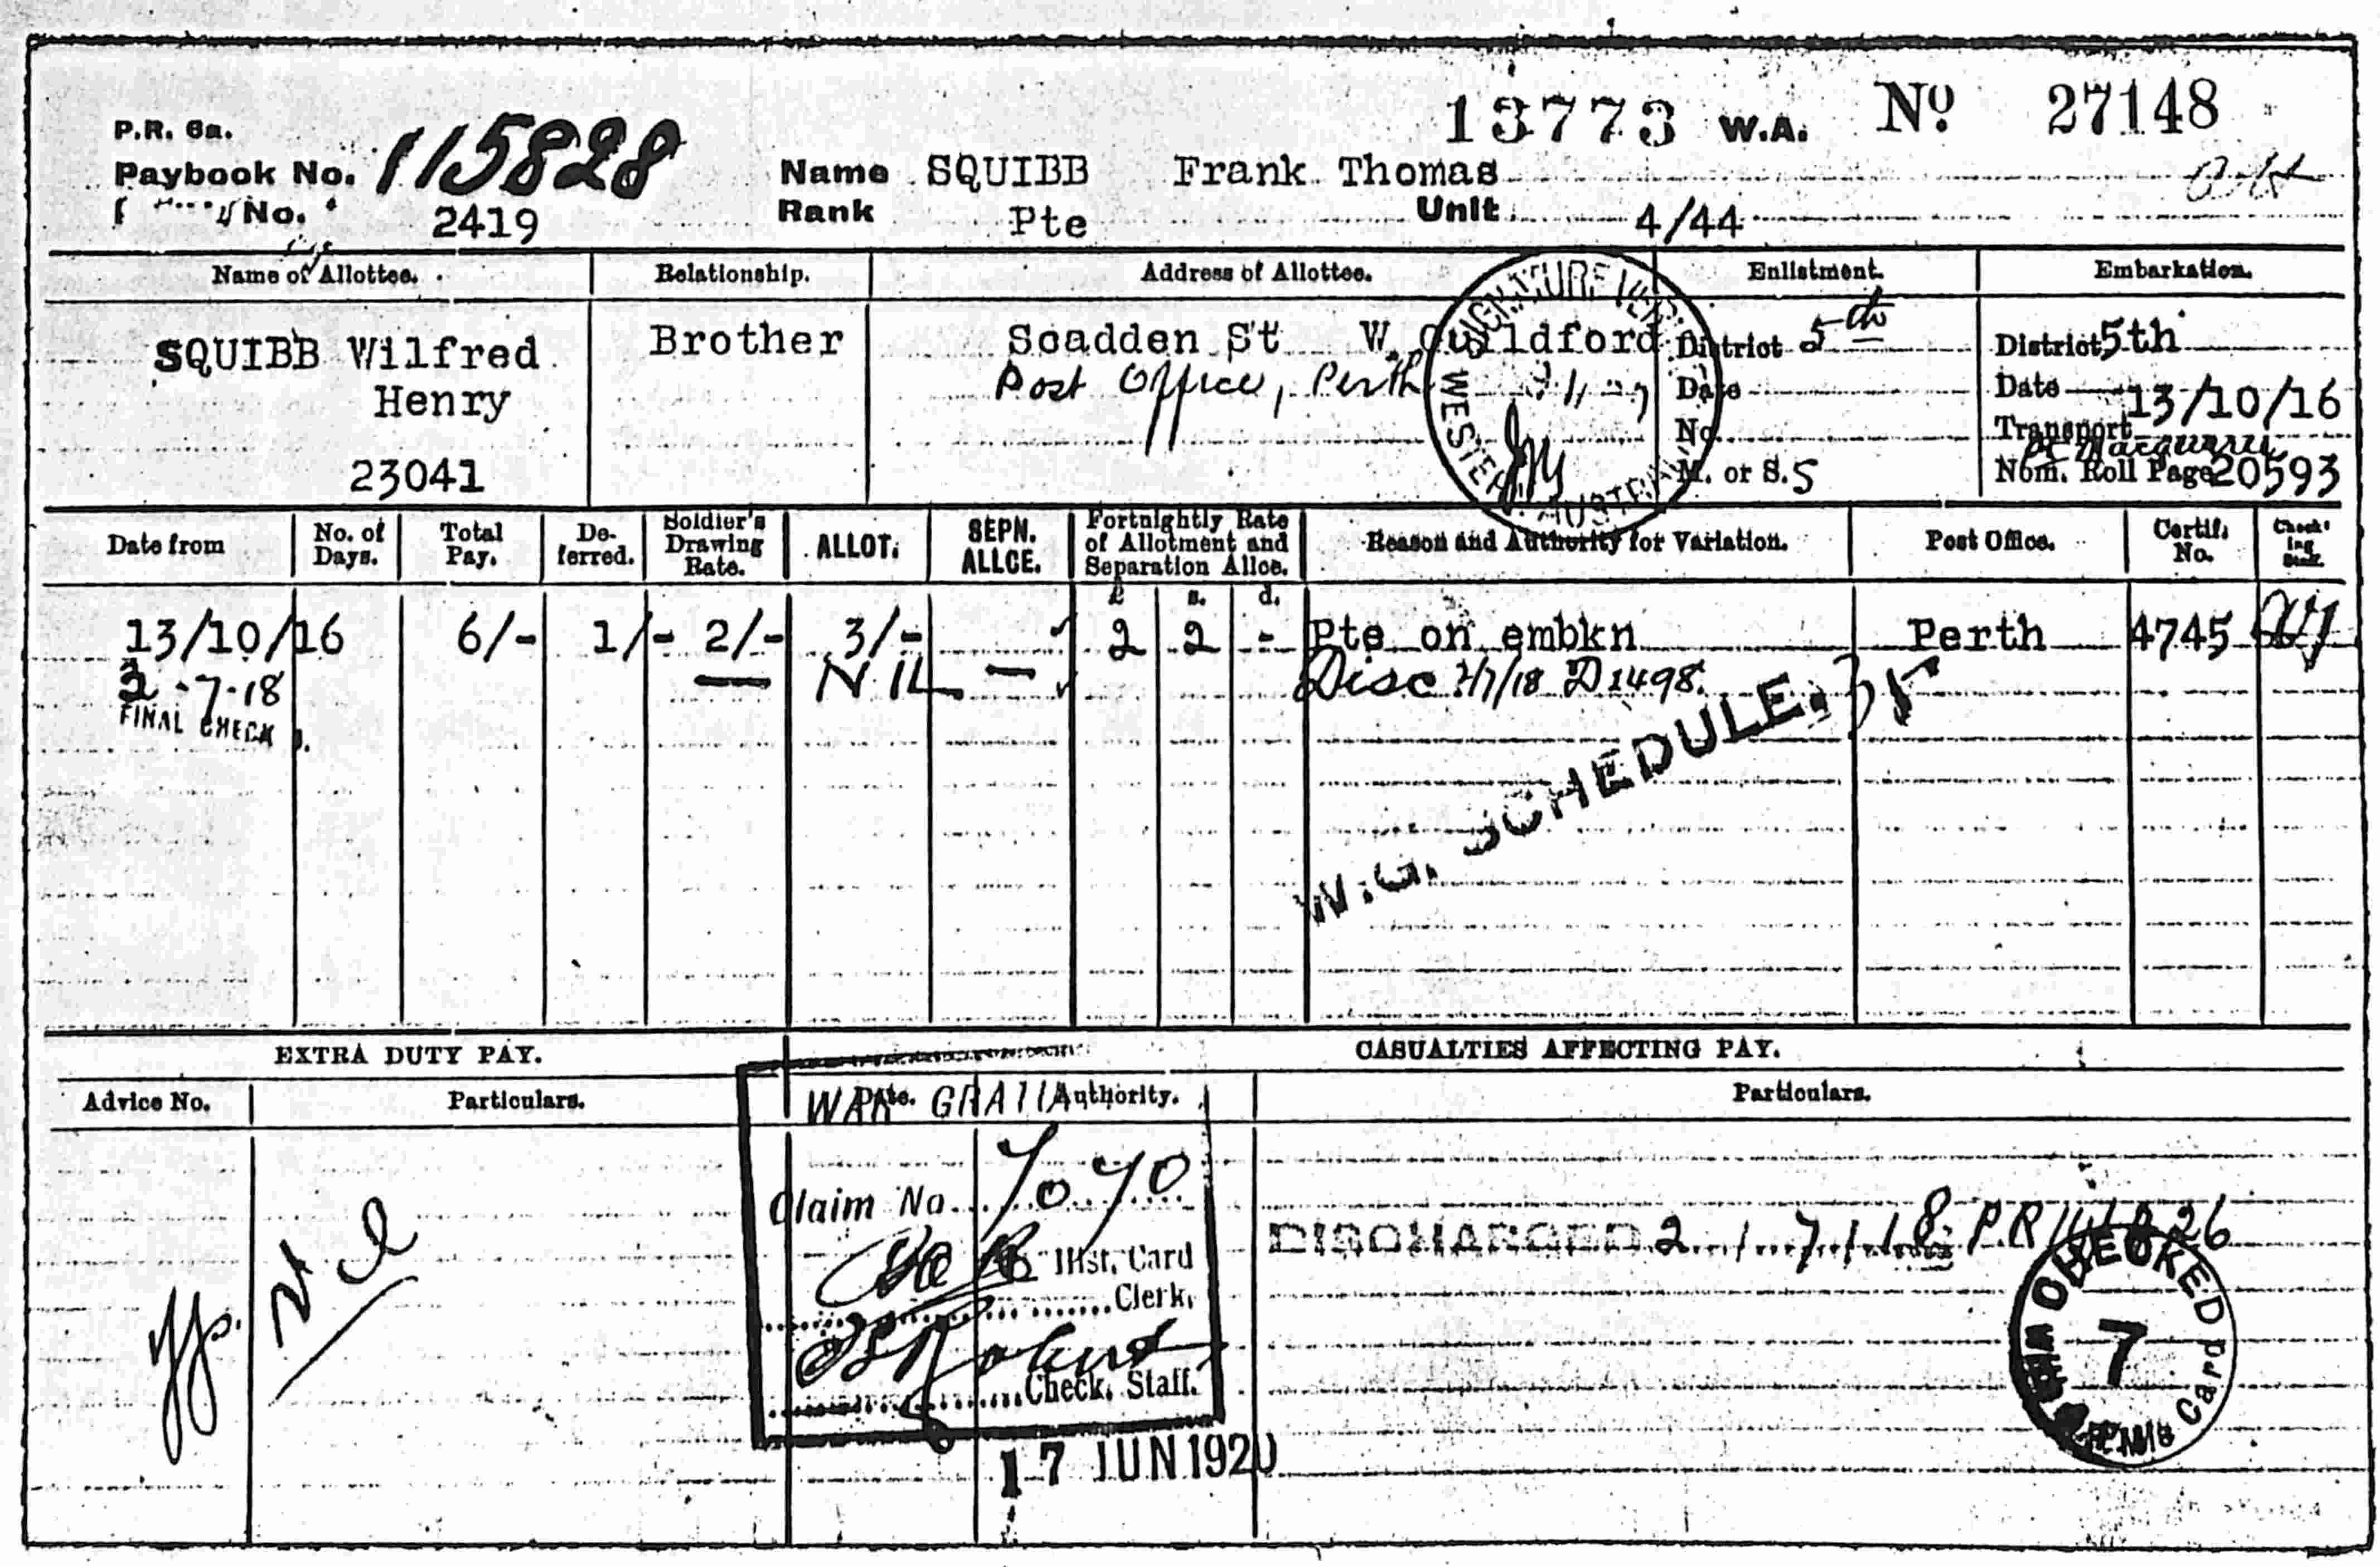 13773 W.A. Nº 27148
P.R. 6a.
Paybook No. 115828 Name SQUIBB Frank Thomas
No. 2419 Rank Pte Unit 4/44
Name of Allottee. Relationship. Address of Allottee. Enlistment. Embarkation.
SQUIBB Wilfred Brother Scadden St W. Guildford District 5th District 5th
Henry Post Office, Perth Date Date 13/10/16
No. Transport
23041 M. or S. 5 Nom. Roll Page 20593
WESTERN AUSTRALIA
Date from No. of Days. Total Pay. De-ferred. Soldier's Drawing Rate. ALLOT. SEPN. ALLCE. Fortnightly Rate of Allotment and Separation Allce. Reason and Authority for Variation. Post Office. Certif. No.
£ s. d.
13/10/16 6/- 1/- 2/- 3/- 2 2 - Pte on embkn Perth 4745
2-7-18 — NIL — Disc 2/7/18 D1498.
FINAL CHECK
W.G. SCHEDULE.
EXTRA DUTY PAY. CASUALTIES AFFECTING PAY.
Advice No. Particulars. Date. Authority. Particulars.
WAR
Claim No. 7070
Nil
DISCHARGED 2/7/18
Hist. Card
Clerk.
Check. Staff.
CHECKED
7
Card
17 JUN 1920